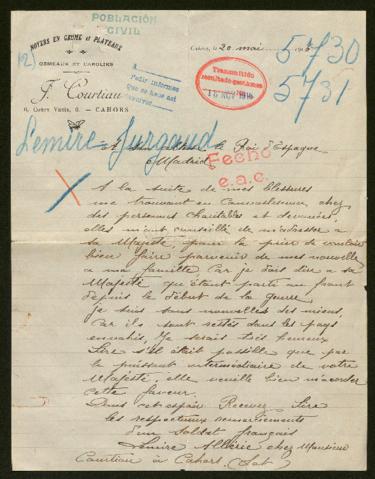 POBLACIÓN
CIVIL
NOYERS EN GRUME et PLATEAUX
ORMEAUX ET CAROLINS
F. Courtiau
6, Cours Vaxis, 6. - CAHORS
Cahors, le 20 mai 1916
5730
5731
Pedir informes
Transmitido
Lemire-Jurgaud
A Sa le Roi d'Espagne
Madrid
Fecho
e.a.c.
A la suite de mes blessures
me trouvant en convalescence chez
des personnes charitables et dernièrement
elles m'ont conseillé de m'adresser a
sa Majesté, pour la prier de vouloir
bien faire parvenir de mes nouvelles
a ma famille Car je dois dire a sa
Majesté qu'étant parti au front
depuis le début de la guerre
Je suis sans nouvelles des miens
Car ils sont restés dans les pays
envahis, Je serais très heureux
Sire s'il était possible que par
le puissant intermédiaire de votre
Majesté, elle veuille bien m'accorder
cette faveur.
Dans cet espoir Recevez Sire
les respectueux remerciements
d'un soldat français
Lemire Albéric chez Monsieur
Courtiau à Cahors (Lot)